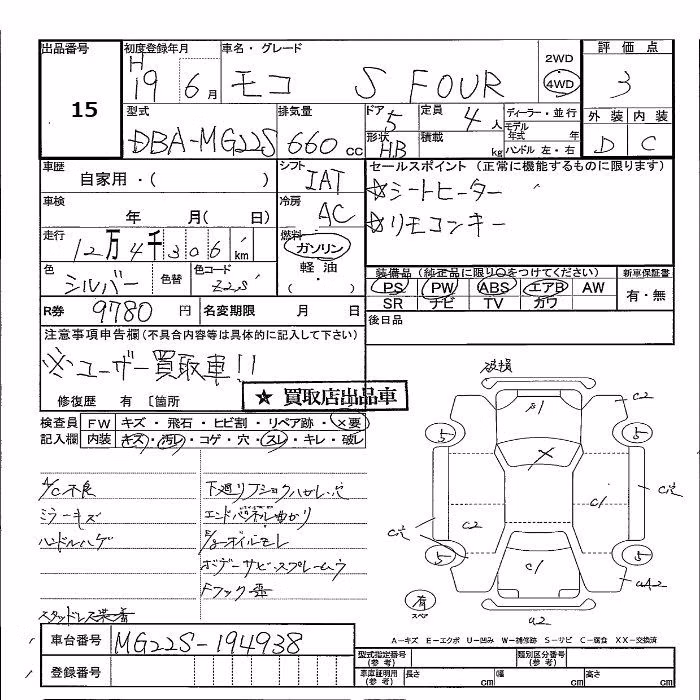 出品番号
15
初度登録年月
H 19 6月
車名・グレード
モコ S FOUR
2WD
4WD
評価点
3
外装 内装
D C
型式
DBA-MG22S
排気量
660 cc
ドア 5
形状 HB
定員 4人
積載 kg
ディーラー・並行
モデル年式 年
ハンドル 左・右
車歴
自家用・( )
シフト
IAT
セールスポイント (正常に機能するものに限ります)
☆シートヒーター
☆リモコンキー
車検
年 月( 日)
冷房
AC
走行
12万4千306km
燃料
ガソリン
軽・油
( )
色
シルバー
色替
色コード
Z2S
装備品(純正品に限り○をつけてください)
PS PW ABS エアB AW
SR ナビ TV カワ
新車保証書
有・無
R券 9780円
名変期限 月 日
後日品
注意事項申告欄(不具合内容等は具体的に記入して下さい)
※ユーザー買取車!!
修復歴 有 〔箇所
☆買取店出品車
検査員記入欄
FW キズ・飛石・ヒビ割・リペア跡・×要
内装 キズ・汚レ・コゲ・穴・スレ・キレ・破レ
A/C不良
ミラーキズ
ハンドルハゲ
スタッドレス装着
下廻リフショクハカレ穴
エンドパネル曲がり
E/gオイルモレ
ボデーサビ・スプレームラ
Fフック歪
破損
β1
C2
5
5
X
C1
C2
C1
5
5
A2
有
スペア
a2
A－キズ E－エクボ U－凹み W－補修跡 S－サビ C－腐食 XX－交換済
車台番号 MG22S-194938
登録番号
型式指定番号(参考)
類別区分番号(参考)
車庫証明用(参考) 長さ cm 幅 cm 高さ cm